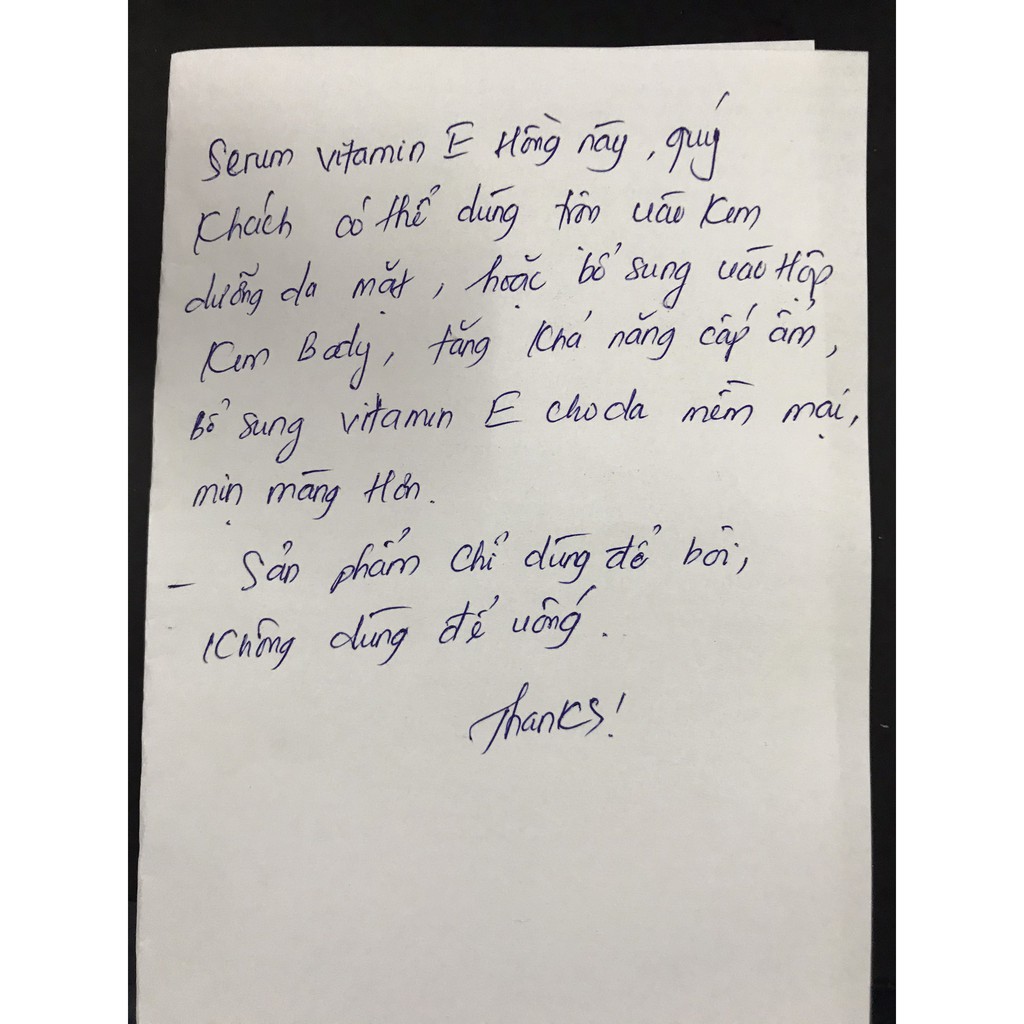 Serum vitamin E Hồng này, quý
Khách có thể dùng trộn vào Kem
dưỡng da mặt, hoặc bổ sung vào Hộp
Kem Body, tăng Khả năng cấp ẩm,
bổ sung vitamin E cho da mềm mại,
mịn màng Hơn.
- Sản phẩm chỉ dùng để bôi,
Không dùng để uống.
Thanks!